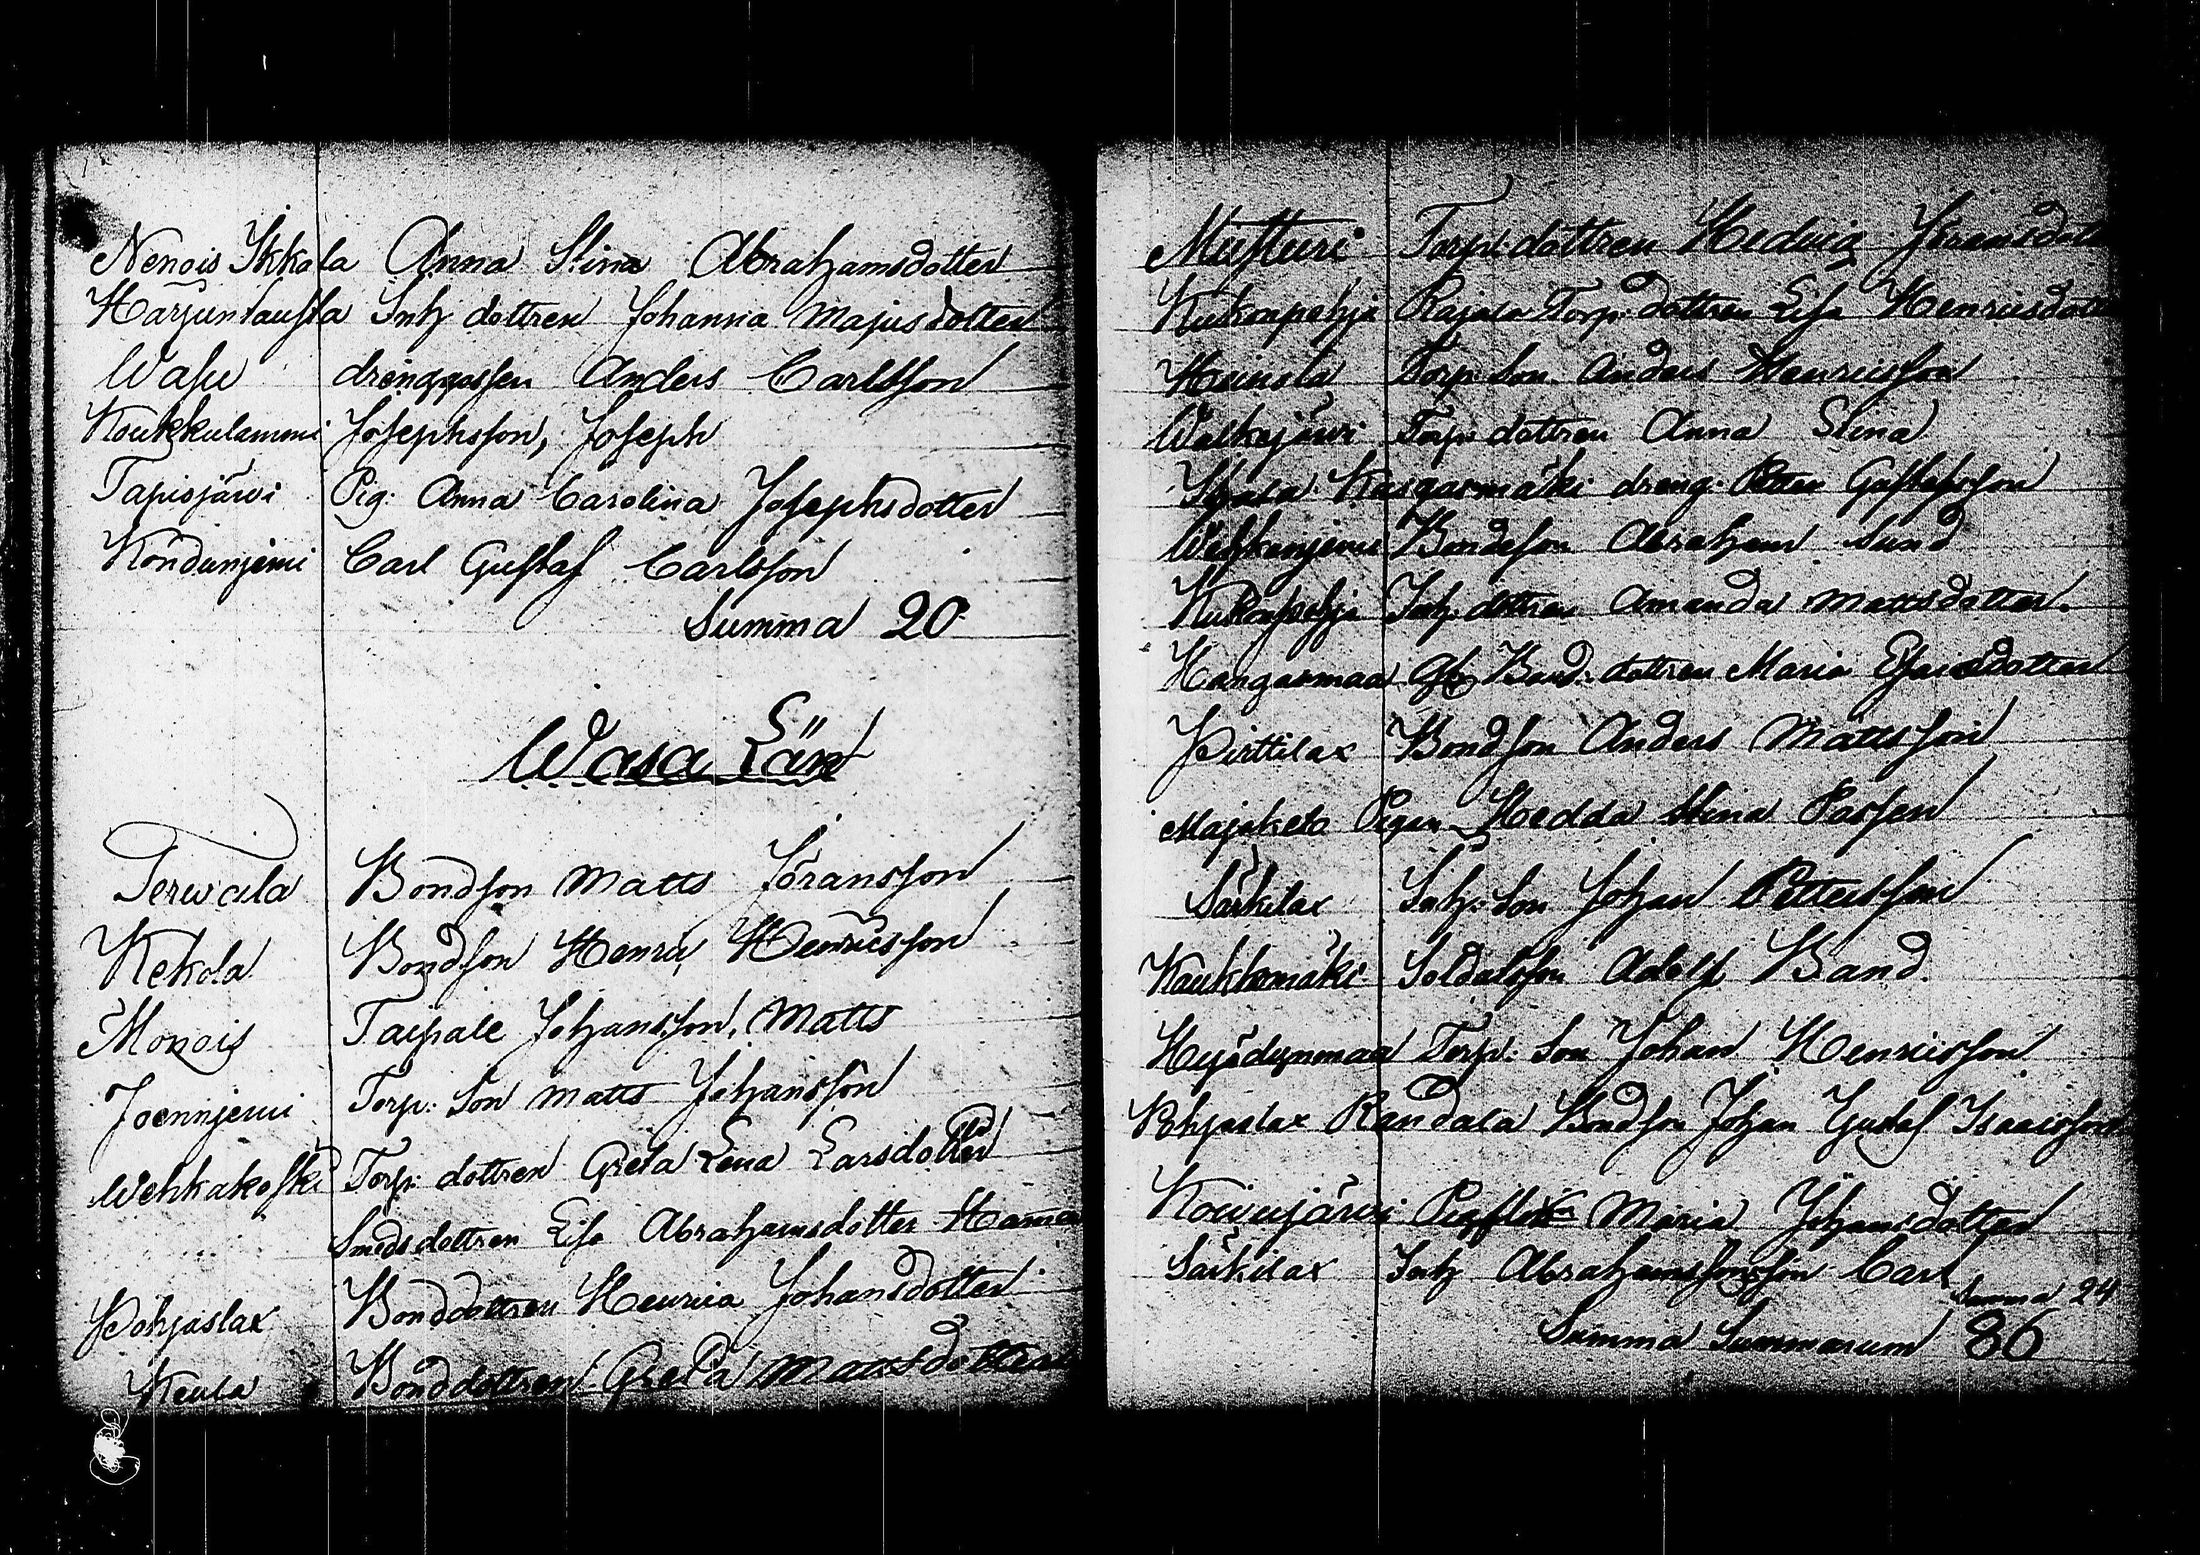 Nenois Ikkala Anna Stina Abrahamsdotter
Harjuntausta Inh dottren Johanna Majusdotter
Wasu drenggossen Anders Carlsson
Koukkulammi Josephsson, Joseph
Tapiojärvi Pig: Anna Carolina Josephsdotter
Köndänjemi Carl Gustaf Carlsson
Summa 20
Wasa Län
Terwala Bondson Matts Göransson
Kekola Bondson Henric Henricsson
Monois Taipale Johansson, Matts
Joennjemi Torp: Son Matts Johansson
Wehkakoski Torp: dottren Greta Lena Larsdotter
Smeds dottren Lisa Abrahamsdotter
Pohjaslax Bonddottren Henrica Johansdotter
Keula Bonddottren Greta Mattsdotter
Torp: dottren Hedvig
Kukonpohja Rajala Torp: dottren Lisa Henricsdotter
Heinola Torp: Son Anders Henricsson
Walkejärvi Torp: dottren Anna Stina
Kangasmäki dreng: Petter Gustafsson
Wehkanjemi Bondeson Abraham Sund
Kukonpohja Inh: dottren Amanda Mattsdotter.
Kangasmaa Afl. Bond: dottren Maria Esaiedotter
Pirttilax Bondson Anders Mattsson
Majaketo Pigan Hedda Stina
Särkilax Inh: Son Johan Pettersson
Kaukkomäki Soldatsson Adolf Band
Torp: Son Johan Henricsson
Pohjaslax Randala Bondson Johan Gustaf Isaacsson
Koivujärvi Pigflick Maria Johansdotter
Särkilax Inh Abrahamssonsson Carl
Summa 24
Summa Summarum 86